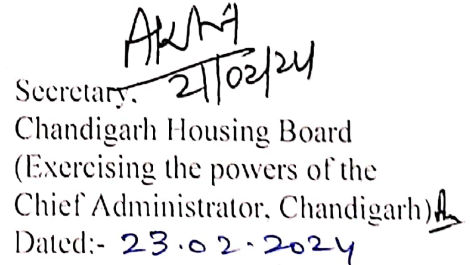 21/02/24
Secretary,
Chandigarh Housing Board
(Exercising the powers of the
Chief Administrator, Chandigarh)
Dated:- 23.02.2024